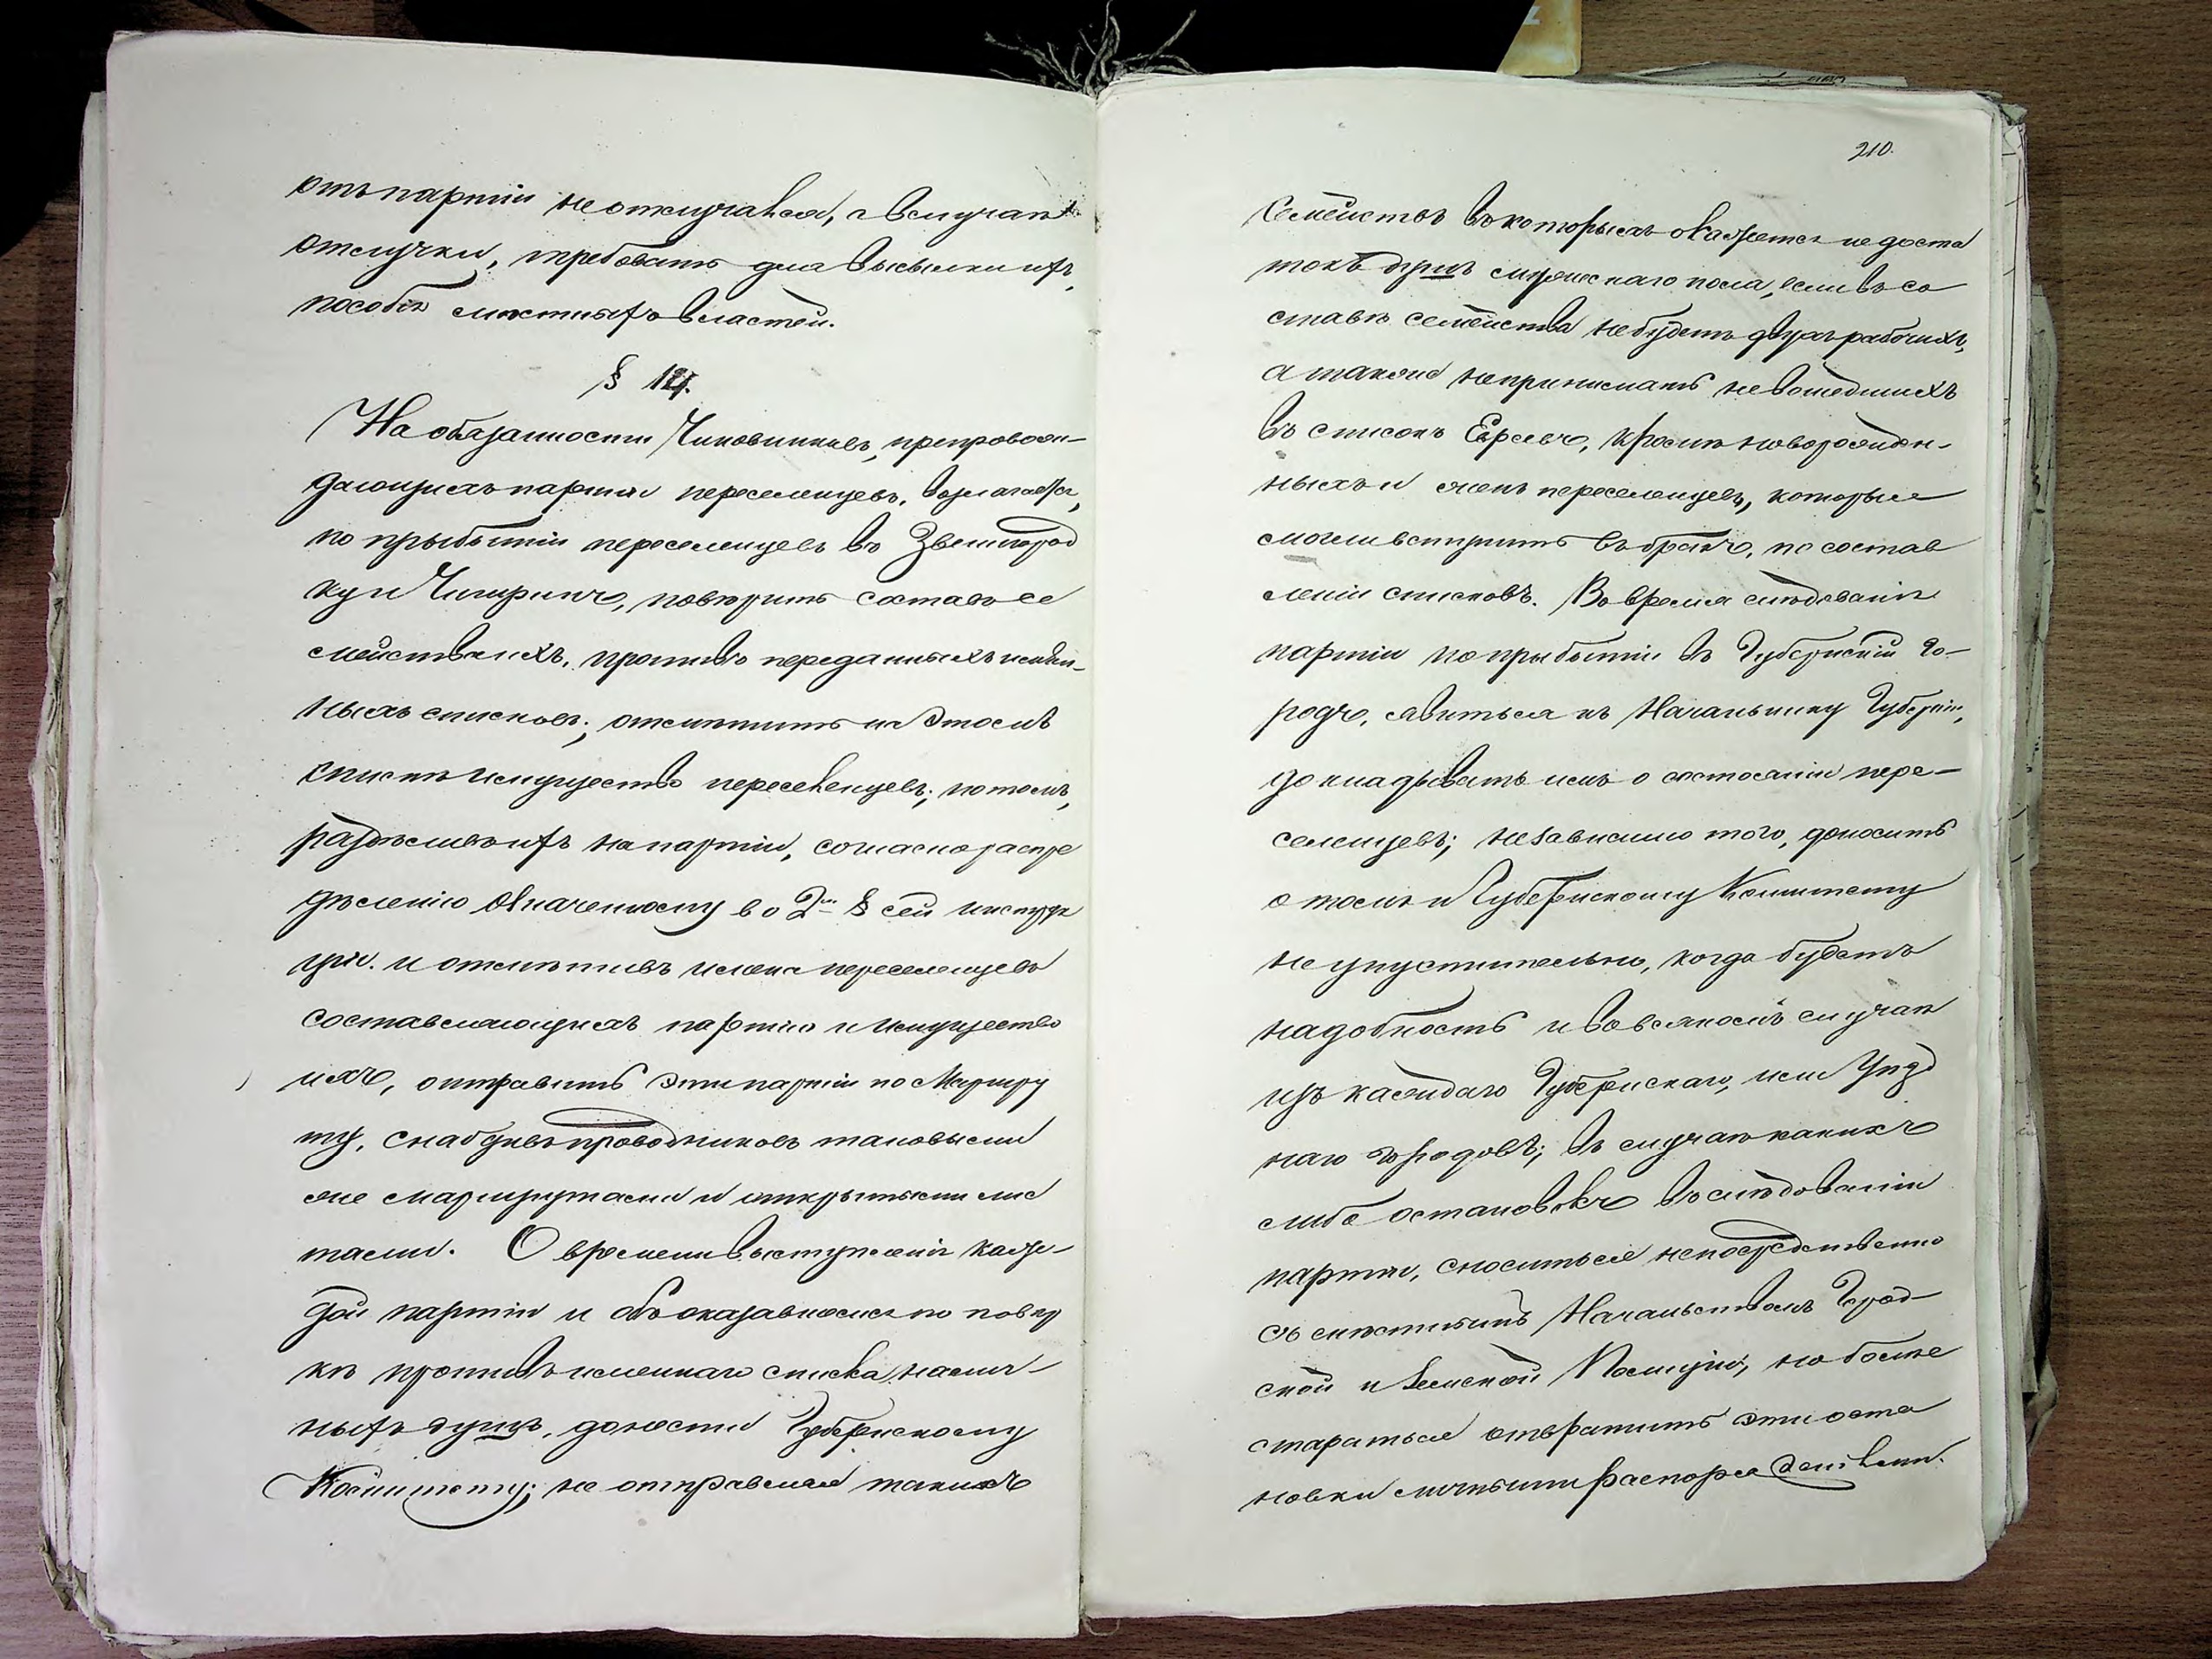 отъ партіи не отлучался, а въ случаѣ
отлучки, требовать для высылки ихъ,
пособія мѣстныхъ властей.
§ 14.
На обязанности Чиновниковъ, препровож-
дающихъ партіи переселенцевъ, возлагается,
по прибытіи переселенцевъ въ Звенигород
ку и Чигиринъ, повѣрить составъ се
мействъ ихъ, противъ переданныхъ имян-
ныхъ списковъ; отмѣтить на этомъ
спискѣ имущество переселенцевъ; потомъ,
раздѣливъ ихъ на партіи, согласно распре
дѣленію означенному во 2м § сей инструк
ціи. и отмѣтивъ имена переселенцевъ
составляющихъ партію и имущество
ихъ, отправить эти партіи по Маршру
ту, снабдивъ проводниковъ таковыми
же маршрутами и открытыми лис
тами. О времени выступленія каж-
дой партіи и объ оказавшемся по повѣр
кѣ противъ имяннаго списка налич-
ныхъ душъ, донести Губернскому
Комитету; не отправляя такихъ
210.
семействъ въ которыхъ окажется недоста
токъ душъ мужескаго пола, если въ со
ставѣ семейства не будетъ двухъ рабочихъ,
а также не принимать не вошедшихъ
въ списокъ Евреевъ, кромѣ новорожден-
ныхъ и женъ переселенцевъ, которые
могли вступить въ бракъ, по состав
леніи списковъ. Во время слѣдованія
партіи по прибытіи въ Губернскій го-
родъ, явиться къ Начальнику Губерніи,
докладывать имъ о состояніи пере-
селенцевъ; независимо того, доносить
о томъ и Губернскому Комитету
неупустительно, когда будетъ
надобность и во всякомъ случаѣ
изъ каждаго Губернскаго, или Уѣзд
наго городовъ; въ случаѣ какихъ
либо остановокъ въ слѣдованіи
партіи, сноситься непосредственно
съ мѣстнымъ Начальствомъ Город-
ской и Земской Полиціи, но болѣе
стараться отвратить эти оста
новки личными распоряженіями.